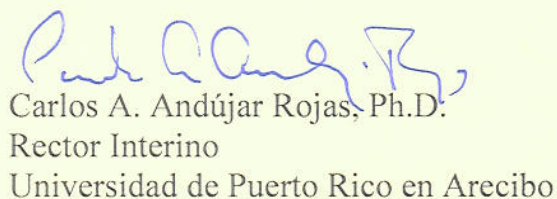 Carlos A. Andújar Rojas, Ph.D.
Rector Interino
Universidad de Puerto Rico en Arecibo